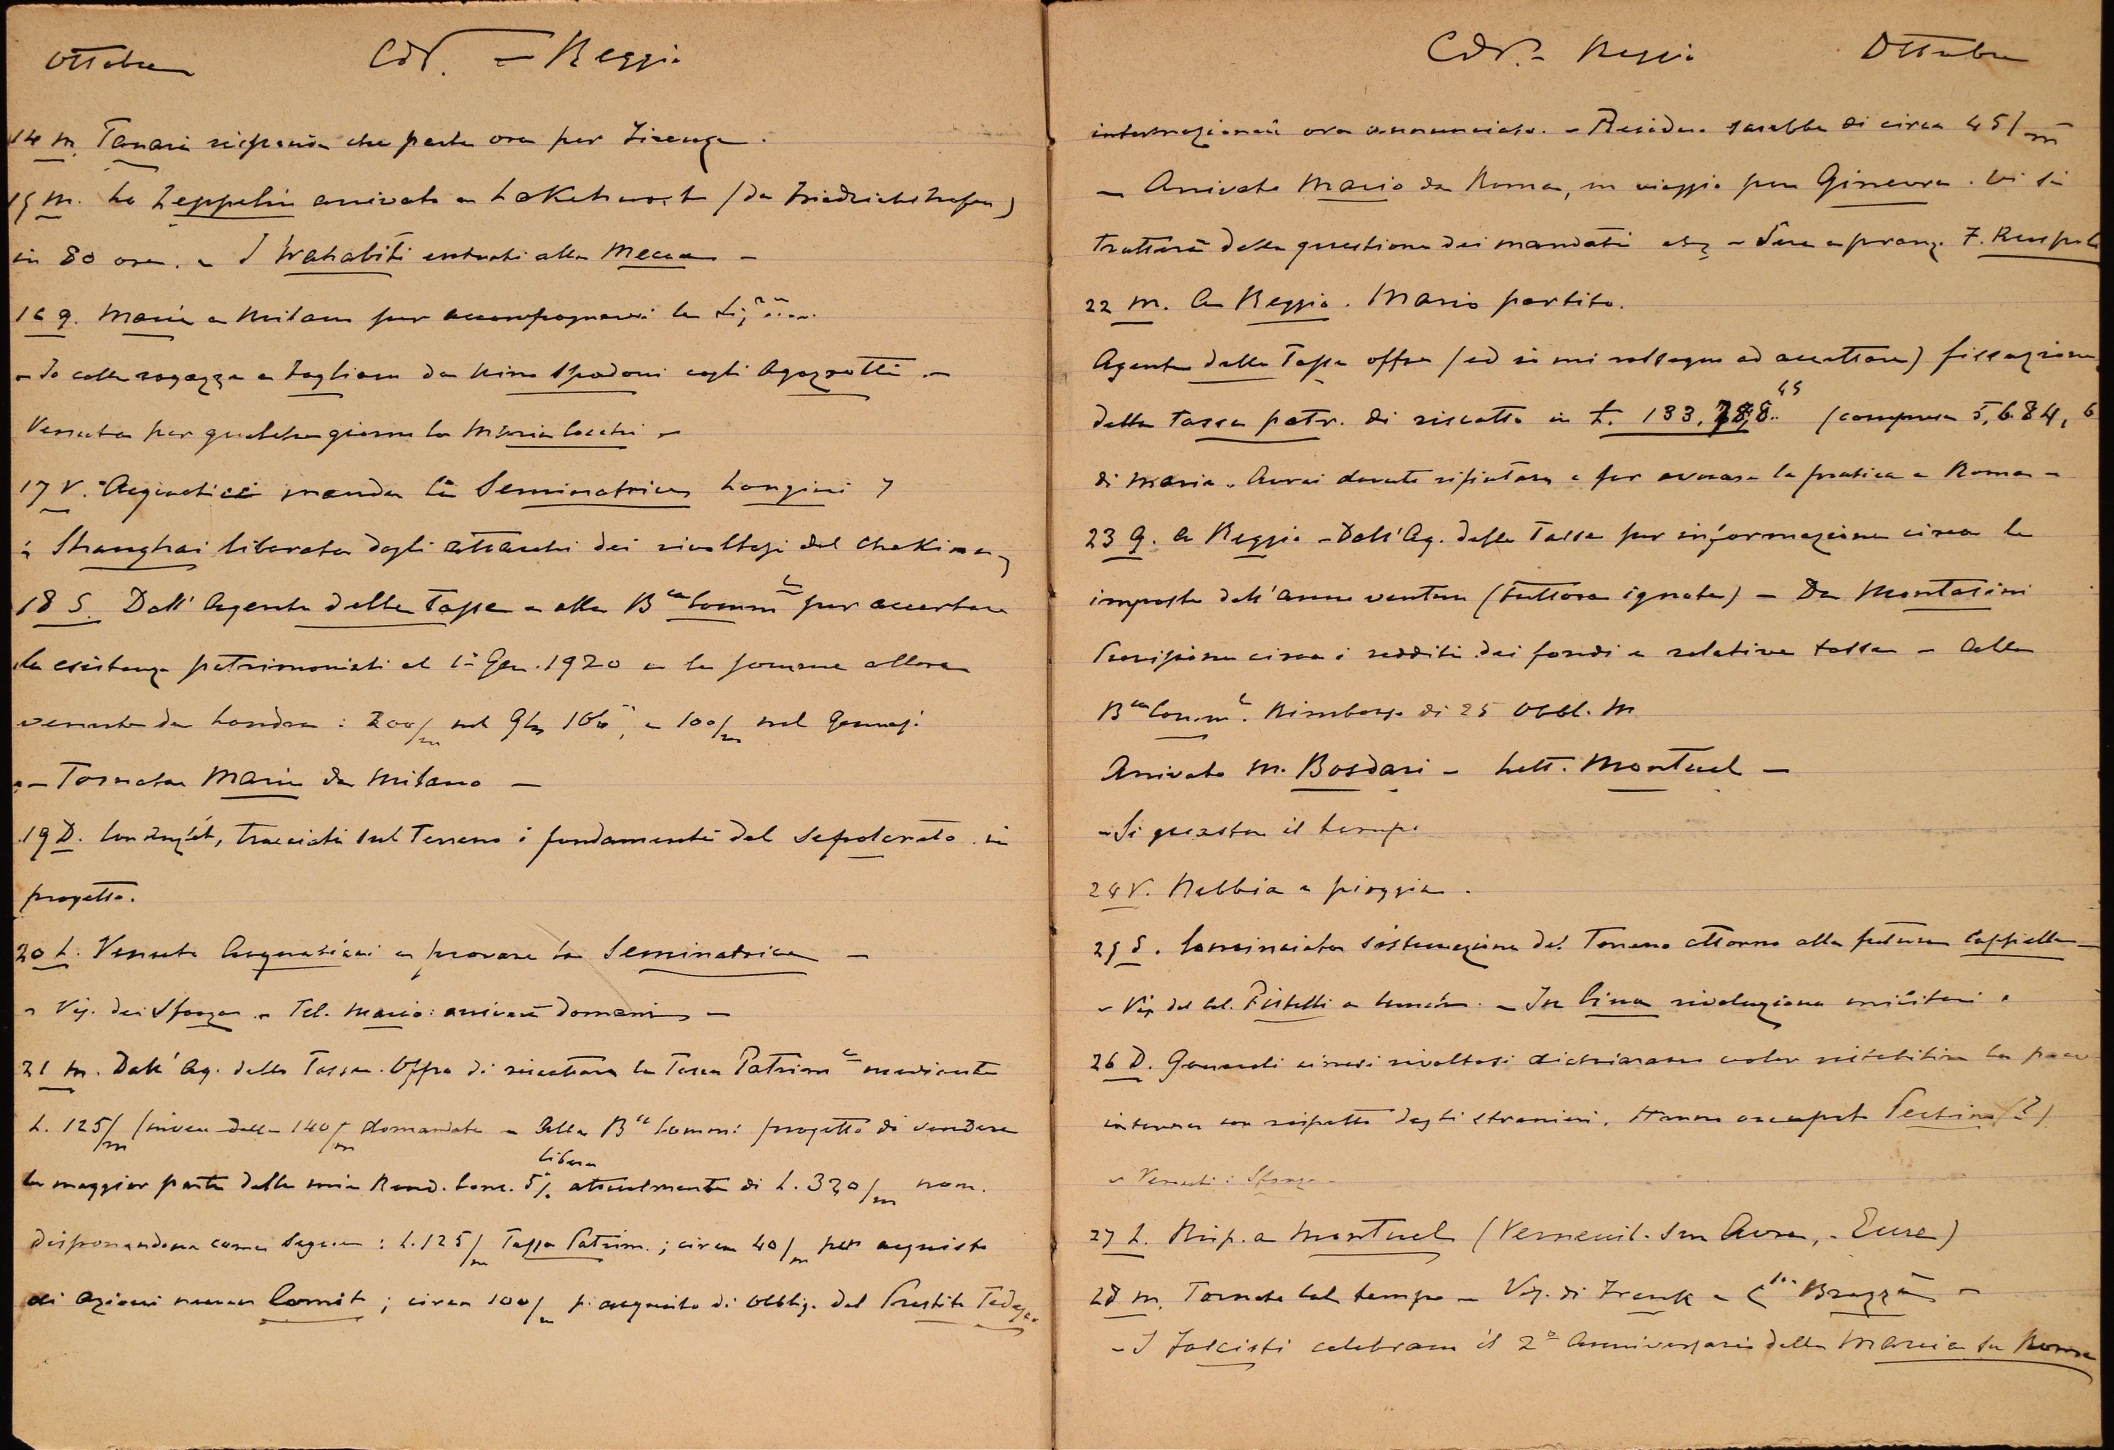 Ottobre CdV. - Reggio
14 M. Tanari risponde che parte ora per Firenze.
15 M. Lo Zeppelin arrivato a Lakehurst (da Friedrichshafen)
in 80 ore. - I Wahabiti entrati alla Mecca -
16 G. Maria a Milano per accompagnarvi la
- Io colle ragazze a Fogliano da Nino Spadoni cogli Agazzotti. -
Venuta per qualche giorno la Maria Cocchi -
17 V. manda la Seminatrice Longini 7
: Shanghai liberata dagli attacchi dei rivoltosi del Chekiang
18 S. Dall' Agente delle Tasse e alla Bca Comm.le per accertare
la esistenza patrimoniali al 1° Gen. 1920 e le somme allora
venute da Londra: 200/m nel e 100/m nel Gennaj.
- Tornata Maria da Milano -
19 D. tracciati sul Terreno i fondamenti del sepolcreto in
progetto.
20 L. Venuto a provare la Seminatrice -
- Vis. dei Sforza - Tel. Mario: arriverà domani -
21 M. Dall' Ag. delle Tasse. Offro di riscattare la Tassa Patrim.le mediante
L. 125/m (invece delle 140/m domandate - Alla Bca Comm: progetto di vendere
la maggior parte della mia Rend. Cons. 5% libera attualmente di L. 320/m nom.
disponendone come segue: L. 125/m Tassa Patrim.; circa 40/m per acquisto
di azioni nuove Comit; circa 100/m p. acquisto di obblig. del Prestito Tedesco
CdV. - Reggio Ottobre
internazionale ora annunciato. - Residuo sarebbe di circa 45/m
- Arrivato Mario da Roma, in viaggio per Ginevra. Vi si
tratterà della questione dei mandati - Sera a pranzo F. Ruspoli
22 M. A Reggio. Mario partito.
Agente delle Tasse offre (ed io mi rassegno ad accettare) fissazione
della tassa patr. di riscatto in L. 133, 45 (comprese 5,684,6
di Maria. Avrei dovuto rifiutare e far avocare la pratica a Roma -
23 G. A Reggio - Dall' Ag. delle Tasse per informazione circa le
imposte dell' anno venturo (tuttora ignote) - Da Montasini
Previsione circa i redditi dei fondi e relative tasse - Alla
Bca Comm.le Rimborso di 25 Obbl. M
Arrivato M. Bosdari - Lett. Montuel -
- Si guasta il tempo
24 V. Nebbia e pioggia.
25 S. Cominciata sistemazione del Terreno attorno alla futura Cappella -
- Vis. del Col. Fistelli - In Cina rivoluzione militari.
26 D. Generali cinesi rivoltosi dichiarano voler ristabilire la pace
interna con rispetto degli stranieri. Hanno occupato Pechino (?)
- Venuti i Sforza -
27 L. Risp. a Montuel (Verneuil-sur Avre, - Eure)
28 M. Tornato bel tempo - Vis. di Frank e Brazzà -
- I Fascisti celebrano il 2° Anniversario della Marcia su Roma